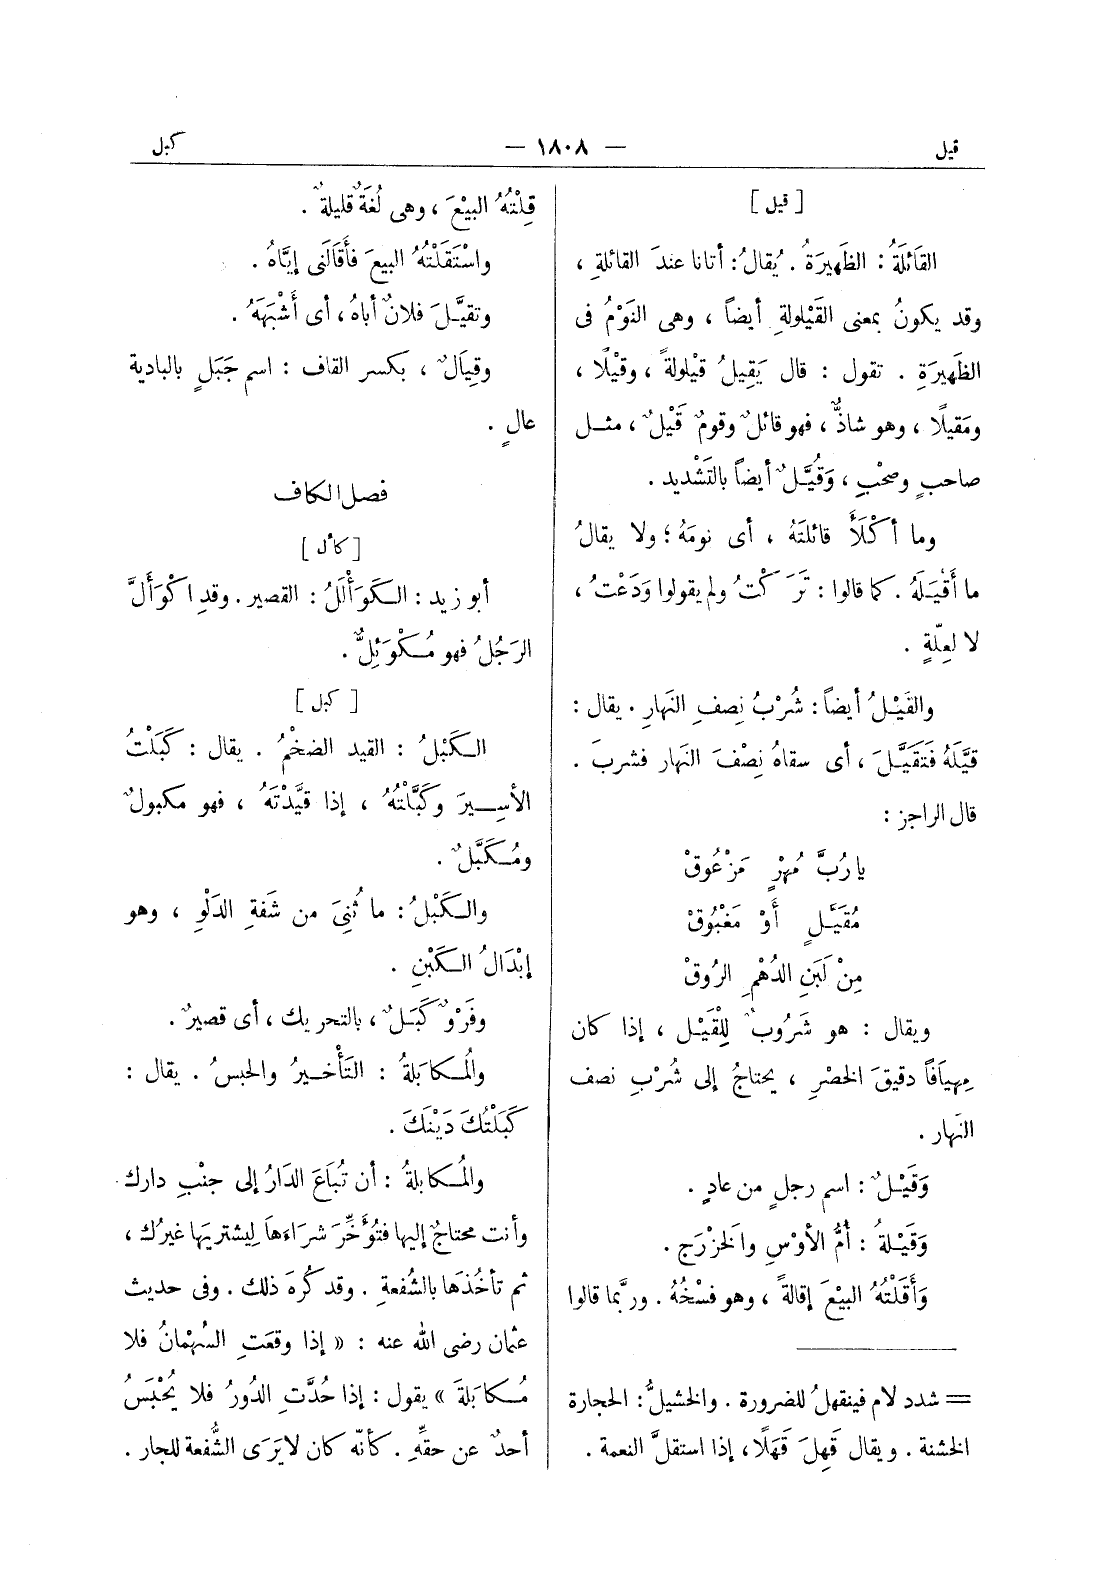 قيل — ١٨٠٨ — كبل
[ قيل ]
القَائلَةُ : الظَهِيرَةُ . يُقالُ : أتانا عندَ القائلةِ ،
وقد يكونُ بمعنى القَيْلولةِ أيضاً ، وهى النَوْمُ فى
الظَهِيرَةِ . تقول : قال يَقِيلُ قيْلولةً ، وقَيْلًا ،
ومَقيلًا ، وهو شاذٌّ ، فهو قائلٌ وقومٌ قَيْلٌ ، مثل
صاحبٍ وصحْبٍ ، وَقُيَّلٌ أيضاً بالتَشْديد .
وما أكْلَأَ قائلتَهُ ، أى نومَهُ ؛ ولا يقالُ
ما أَقْيَلَهُ . كما قالوا : تَرَكتُ ولم يقولوا وَدَعْتُ ،
لا لعِلّةٍ .
والقَيْلُ أيضاً : شُرْبُ نِصفِ النَهارِ . يقال :
قيَّلَهُ فَتَقَيَّلَ ، أى سقاهُ نِصْفَ النَهار فشربَ .
قال الراجز :
يا رُبَّ مُهْرٍ مَزْعُوقْ
مُقَيَّلٍ أَوْ مَغْبُوقْ
مِنْ لَبَنِ الدُهْمِ الرُوقْ
ويقال : هو شَرُوبٌ لِلْقَيْل ، إذا كان
مِهيَافاً دقيقَ الخَصْرِ ، يحتاجُ إلى شُرْبِ نصف
النَهار .
وَقَيْلٌ : اسم رجلٍ من عادٍ .
وَقَيْلةُ : أُمُّ الأوْسِ والخزْرَج .
وَأَقَلْتُهُ البيْعَ إقالةً ، وهو فسْخُهُ . وربَّما قالوا
== شدد لام فينقهلُ للضرورة . والخشيلُّ : الحجارة
الخشنة . ويقال قَهِلَ قَهَلًا ، إذا استقلَّ النعمة .
قِلْتُهُ البيْعَ ، وهى لُغَةٌ قليلةٌ .
واسْتَقَلْتُهُ البيعَ فأَقَالَنى إيَّاهُ .
وتقيَّلَ فلانٌ أباهُ ، أى أَشْبَهَهُ .
وقِيَالٌ ، بكسر القاف : اسم جَبَلٍ بالبادية
عالٍ .
فصل الكاف
[ كأل ]
أبو زيد : الكَوَأْلَلُ : القصير . وقدِ اكْوَأَلَّ
الرَجُلُ فهو مُكْوَئِلٌّ .
[ كبل ]
الكَبْلُ : القيد الضخْمُ . يقال : كَبَلْتُ
الأسِيرَ وكَبَّلْتُهُ ، إذا قيَّدْتَهُ ، فهو مكبولٌ
ومُكَبَّلٌ .
والكَبْلُ : ما ثُنِىَ من شَفةِ الدَلْوِ ، وهو
إبْدَالُ الكَبْنِ .
وفَرْوٌ كَبَلٌ ، بالتحريك ، أى قصيرٌ .
والمُكابَلةُ : التَأْخيرُ والحَبسُ . يقال :
كَبَلْتُكَ دَيْنَكَ .
والمُكابلةُ : أن تُبَاعَ الدَارُ إلى جنْبِ دارك
وأنت محتاجٌ إليها فتُؤَخِّرَ شراءَها لِيشتريَها غيرُك ،
ثم تأخُذَها بالشُفعةِ . وقد كُرهَ ذلك . وفى حديث
عثمان رضى الله عنه : « إذا وقعَتِ السُهْمانُ فلا
مُكابَلةَ » يقول : إذا حُدَّتِ الدُورُ فلا يُحْبَسُ
أحدٌ عن حقهِّ . كأنّه كان لا يَرَى الشُفعة للجار .